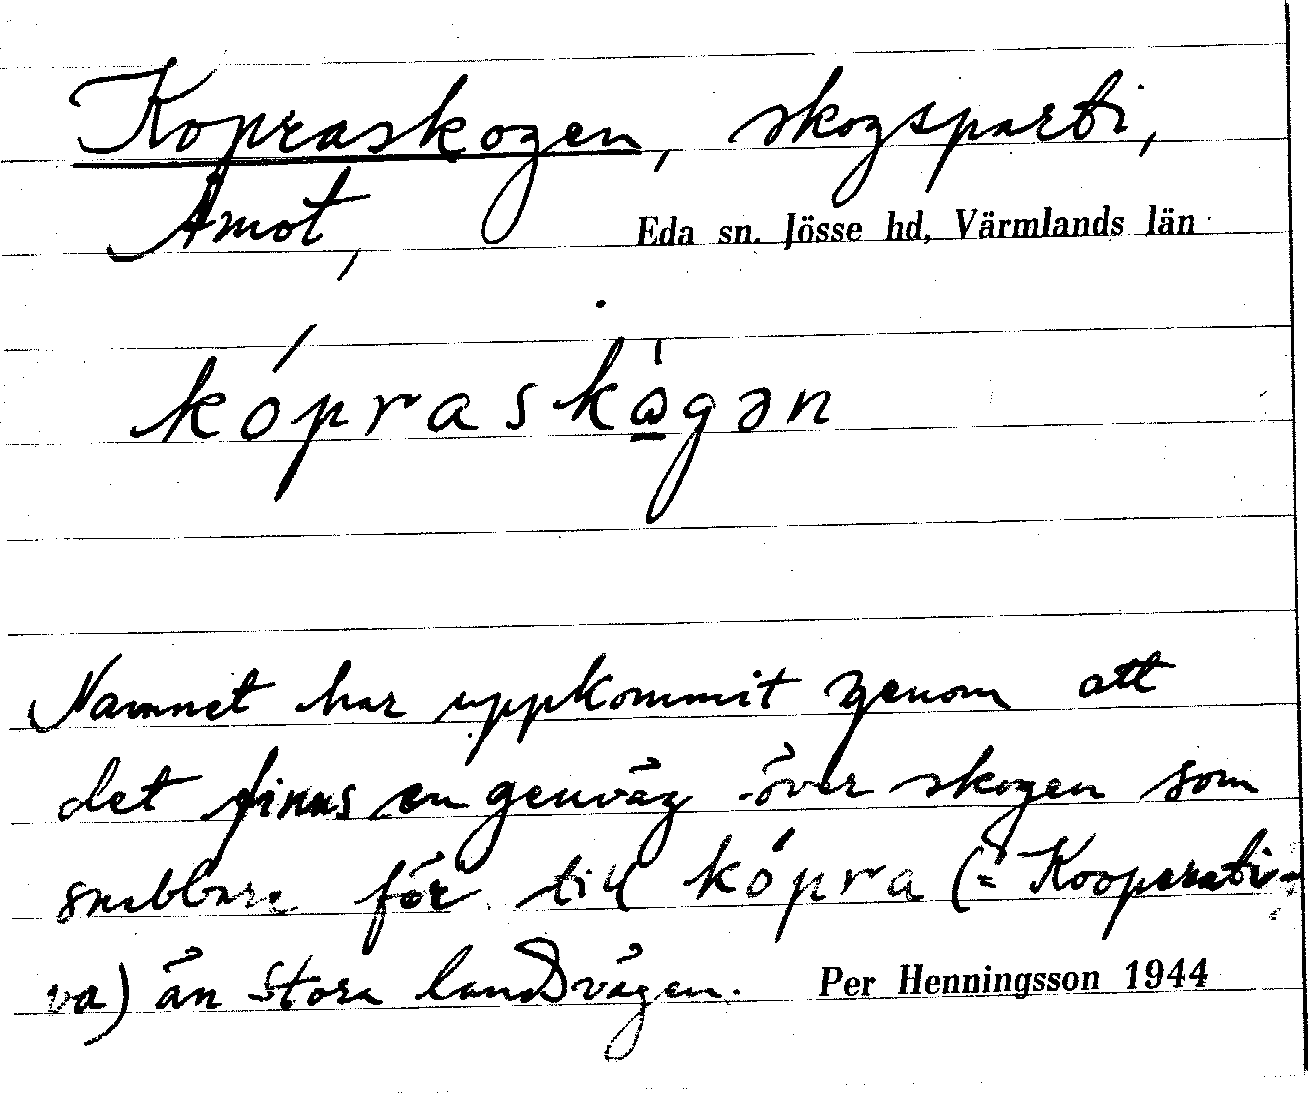 Kopraskogen, skogsparti,
Åmot, Eda sn. Jösse hd, Värmlands län
kópraskògən
Namnet har uppkommit genom att
det finns en genväg över skogen som
snabbare för till kópra (= Kooperati-
va) än stora landsvägen. Per Henningsson 1944